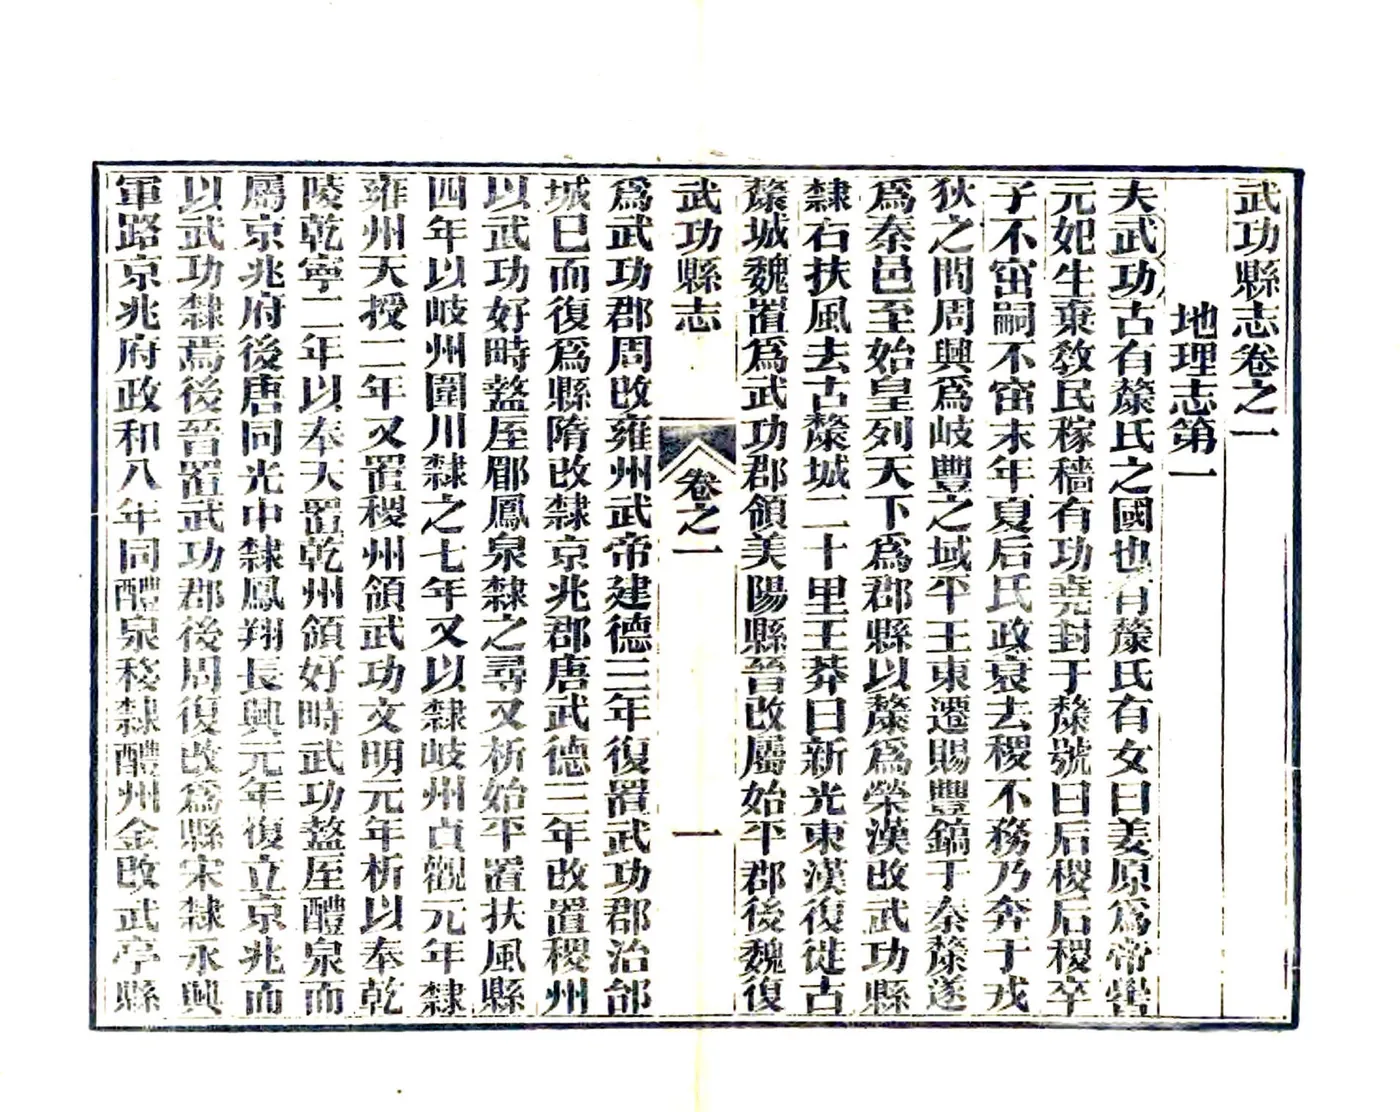 武功縣志卷之一
地理志第一
夫武功古有斄氏之國也有斄氏有女曰姜原爲帝嚳
元妃生棄敎民稼穡有功堯封于斄號曰后稷后稷卒
子不窋嗣不窋末年夏后氏政衰去稷不務乃奔于戎
狄之間周興爲岐豐之域平王東遷賜豐鎬于秦斄遂
爲秦邑至始皇列天下爲郡縣以斄爲榮漢改武功縣
隸右扶風去古斄城二十里王莽曰新光東漢復徙古
斄城魏置爲武功郡領美陽縣晉改屬始平郡後魏復
武功縣志
卷之一
一
爲武功郡周改雍州武帝建德三年復置武功郡治邰
城已而復爲縣隋改隸京兆郡唐武德三年改置稷州
以武功好畤盩厔郿鳳泉隸之尋又析始平置扶風縣
四年以岐州圍川隸之七年又以隸岐州貞觀元年隸
雍州天授二年又置稷州領武功文明元年析以奉乾
陵乾寧二年以奉天置乾州領好畤武功盩厔醴泉而
屬京兆府後唐同光中隸鳳翔長興元年復立京兆而
以武功隸焉後晉置武功郡後周復改爲縣宋隸永興
軍路京兆府政和八年同醴泉稅隸醴州金改武亭縣